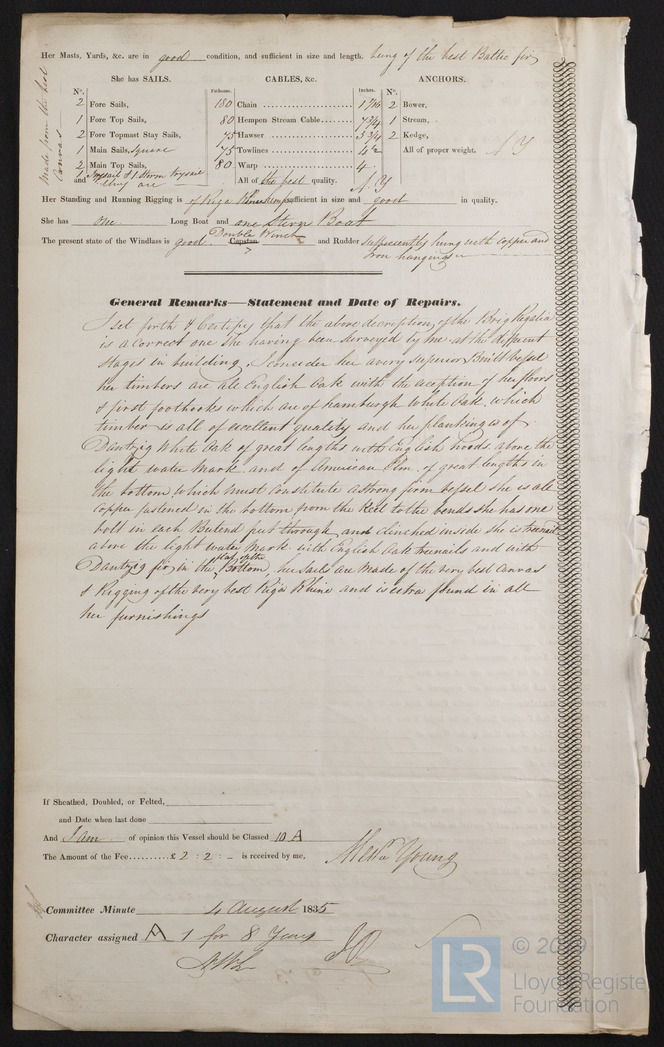 Her Masts, Yards, &c. are in good condition, and sufficient in size and length. being of the best Baltic fir
She has SAILS. CABLES, &c. ANCHORS.
Nº. Fathoms. Inches. Nº.
2 Fore Sails, 180 Chain 1 7/16 2 Bower,
1 Fore Top Sails, 80 Hempen Stream Cable 7 3/4 1 Stream,
2 Fore Topmast Stay Sails, 75 Hawser 5 3/4 2 Kedge,
1 Main Sails, Square 75 Towlines All of proper weight. A Y
2 Main Top Sails, 80 Warp 4
1 Trysail & 1 Storm Trysail
and they are All of the best quality. A Y
made from the best
Canvas
Her Standing and Running Rigging is of Riga Rhine hemp sufficient in size and good in quality.
She has one Long Boat and one Stern Boat
Double Winch
The present state of the Windlass is good. Capstan and Rudder sufficiently hung with copper and
iron hangings
General Remarks—Statement and Date of Repairs.
I set forth & Certify that the above decription of the Brig Regalia
is a correct one she having been surveyed by me at the different
stages in building, I consider her a very superior Built vessel
her timbers are all English Oak with the aception of her floors
& first foothooks which are of hamburgh White Oak. which
timber is all of excellent quality and her planking is of
Dantzig White Oak of great lengths with English hoods above the
light water mark and of American Elm of great lengths in
the bottom, which must constitute a strong firm vessel she is all
copper fastened in the bottom from the Keel to the bends she has one
bolt in each Butend put through and clinched inside she is treenail
above the light water mark with English Oak treenails and with
Dantzig fir in the flat of the Bottom. her sails are made of the very best Canvas
& Rigging of the very best Riga Rhine and is extra found in all
her furnishings
If Sheathed, Doubled, or Felted,
and Date when last done
And I am of opinion this Vessel should be Classed 10 A
The Amount of the Fee £ 2 : 2 : – is received by me, Alexr Young
Committee Minute 4 August 1835
Character assigned A 1 for 8 Years
LR © 2019
Lloyd's Register
Foundation